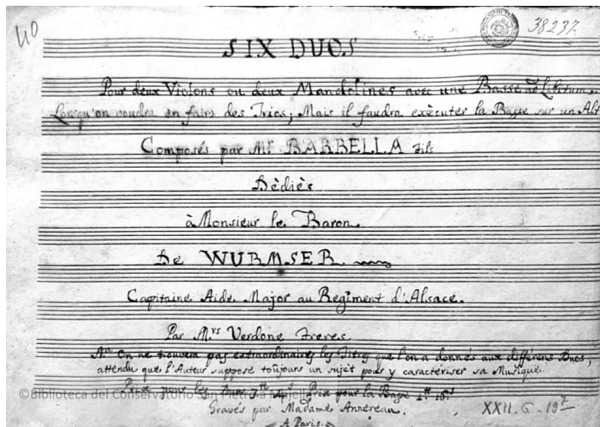 40
38237.
SIX DUOS
Pour deux Violons ou deux Mandolines avec une Basse ad Libitum.
Lorsqu'on voudra en faire des Trios; Mais il faudra exècuter la Basse sur un Alt
Composés par Mr. BARBELLA Fils
Dèdiès
à Monsieur le Baron.
De WURMSER
Capitaine Aide Major au Regiment d'Alsace.
Par M.rs Verdone freres.
On ne trouvera pas extraordinaire les Titres que l'on a donnés aux différens Duos,
attendu que l'Auteur suppose toûjours un sujet pour y caractériser sa Musique.
Prix pour les Prix pour la Basse
©Biblioteca del Conservatorio San Pietro a
Gravés par Madame Annereau.
XXII-6-19
A Paris.